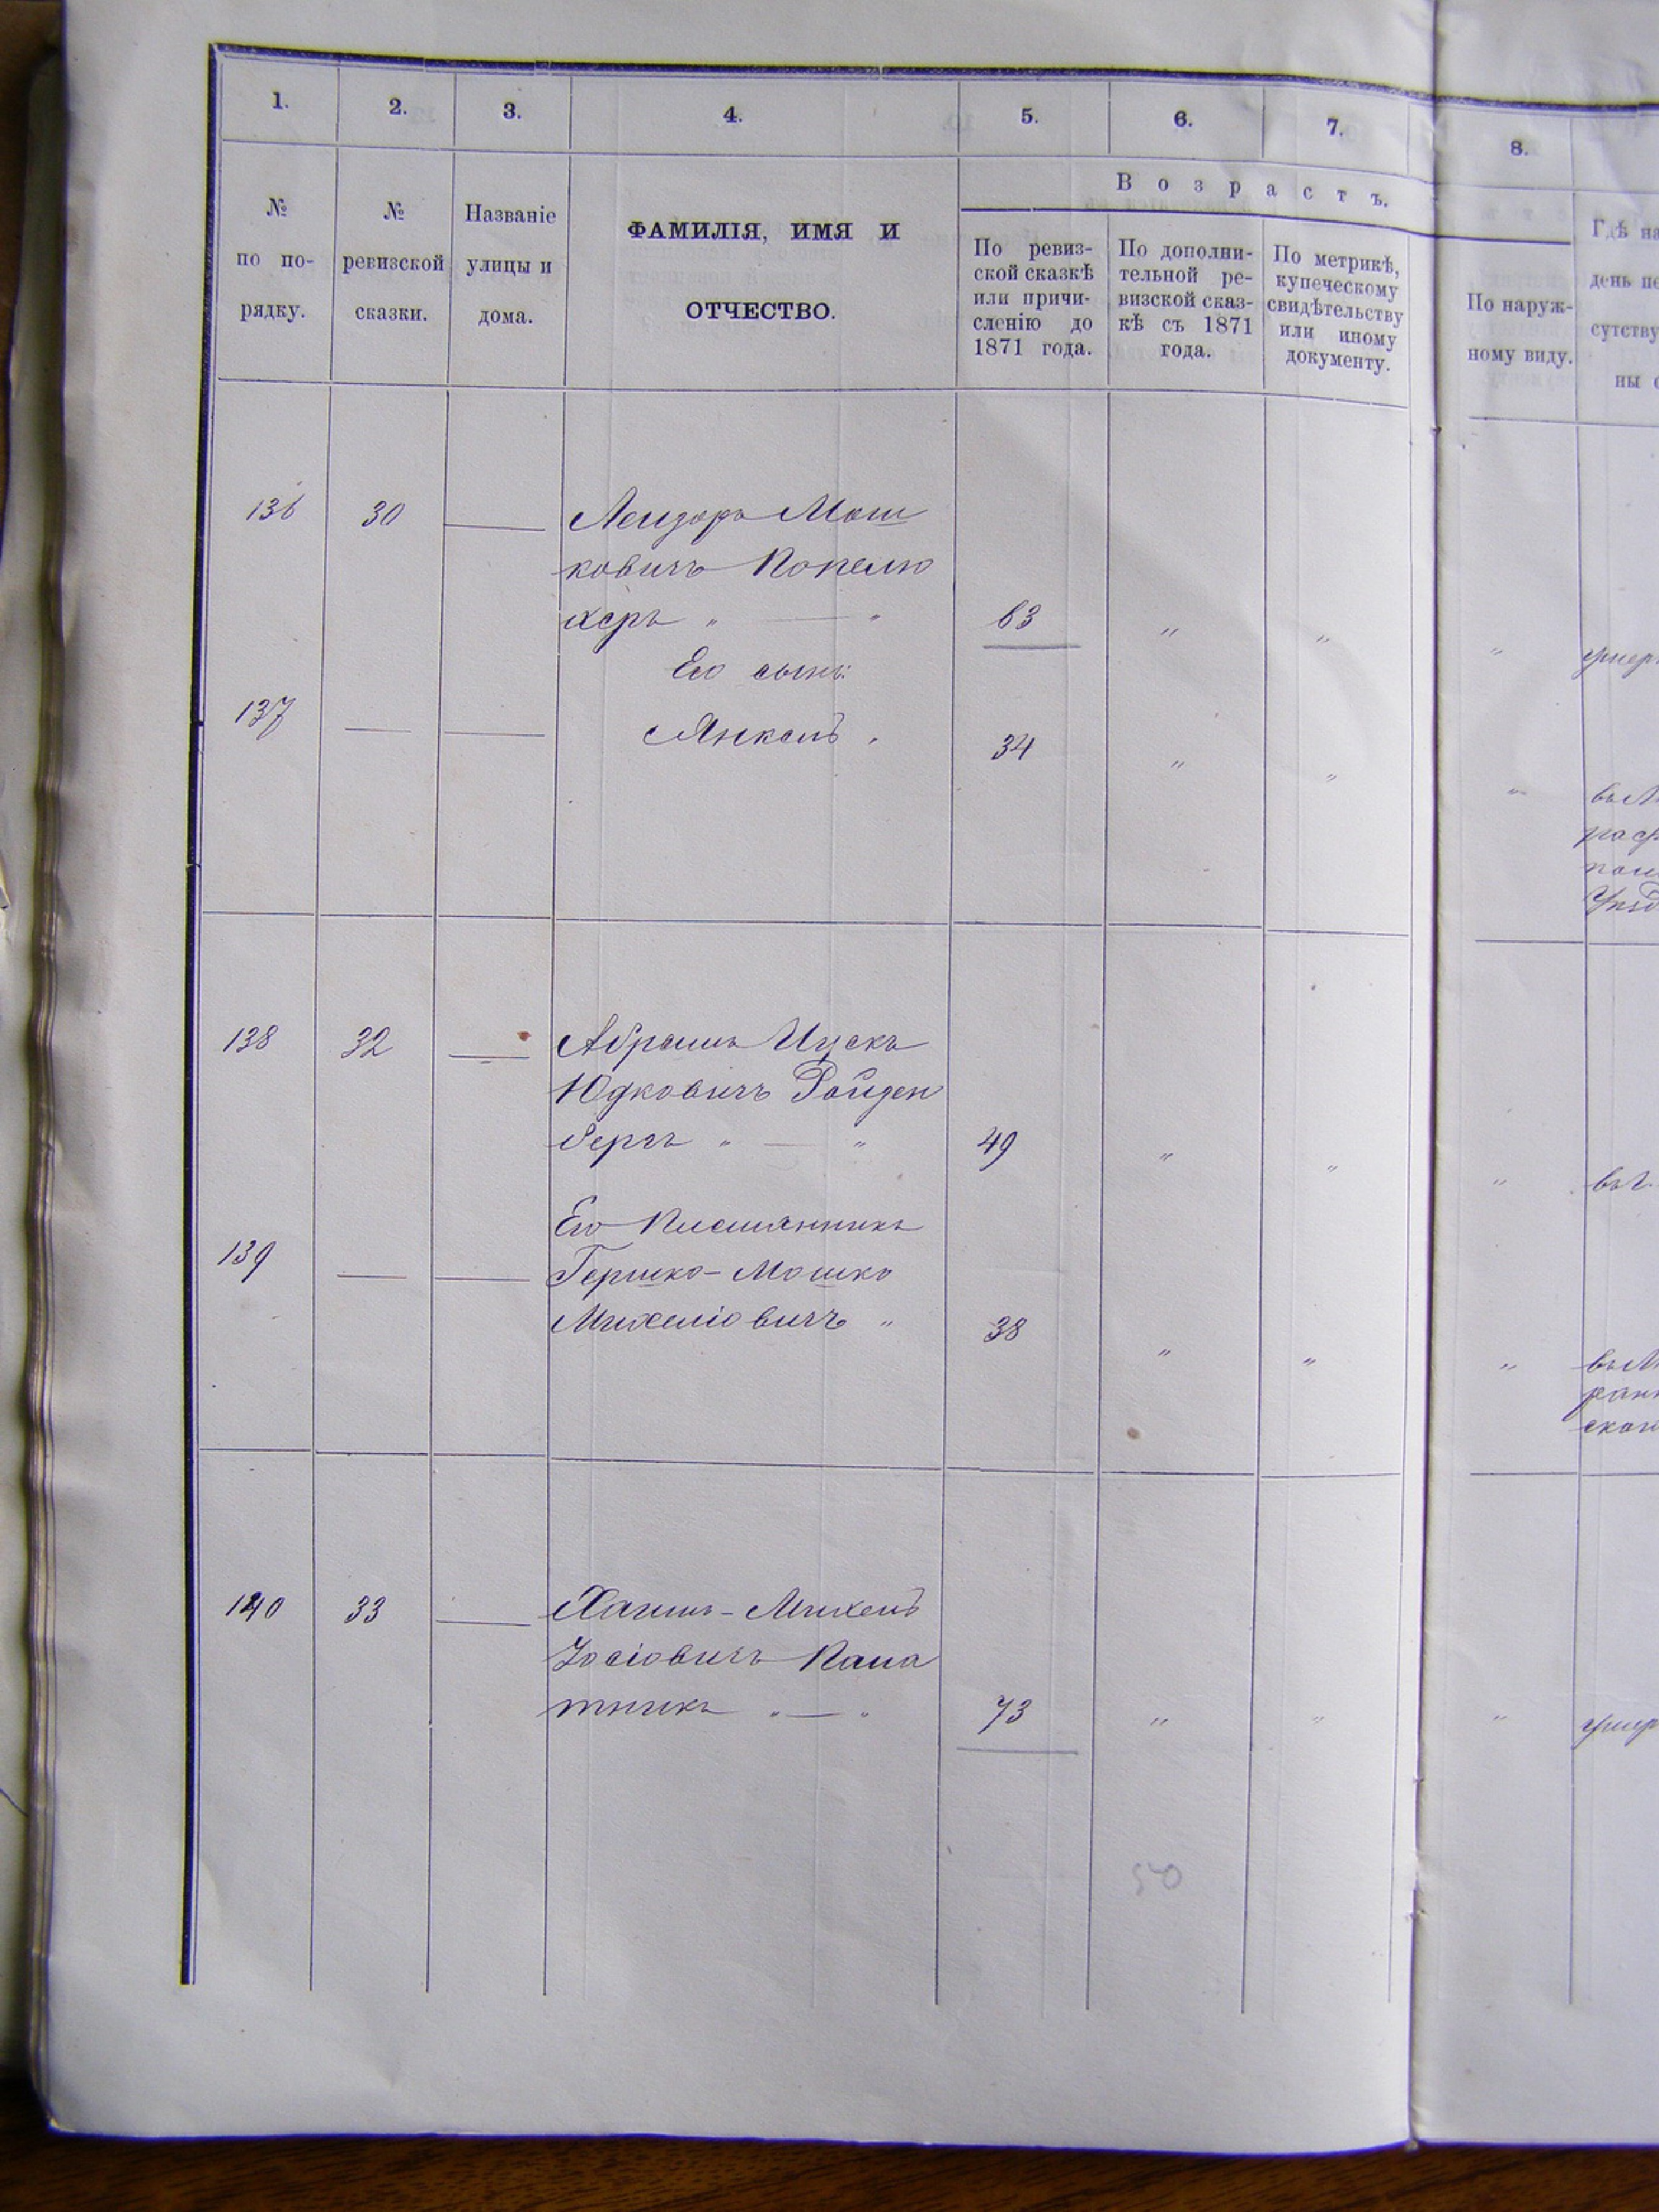 1. 2. 3. 4. 5. 6. 7. 8.
В о з р а с т ъ.
№ по по-рядку.
№ ревизской сказки.
Названіе улицы и дома.
ФАМИЛІЯ, ИМЯ И
ОТЧЕСТВО.
По ревиз-
ской сказкѣ
или причи-
сленію до
1871 года.
По дополни-
тельной ре-
визской сказ-
кѣ съ 1871
года.
По метрикѣ,
купеческому
свидѣтельству
или иному
документу.
По наруж-
ному виду.
Гдѣ на
день пе
сутству
ны
136 30 — Лейзоръ Мош
ковичъ Копелю
херъ " — " 63 " " " умеръ
Его сынъ:
137 — — Янкель " 34 " " "
138 32 — Абрамъ Ицекъ
Юдковичъ Ройзен
бергъ " — " 49 " " "
Его племянникъ
139 — — Гершко-Мошко
Михеліовичъ " 38 " " "
140 33 — Хаимъ-Михель
Іосіовичъ Кана
тникъ " — " 73 " " " умер
540